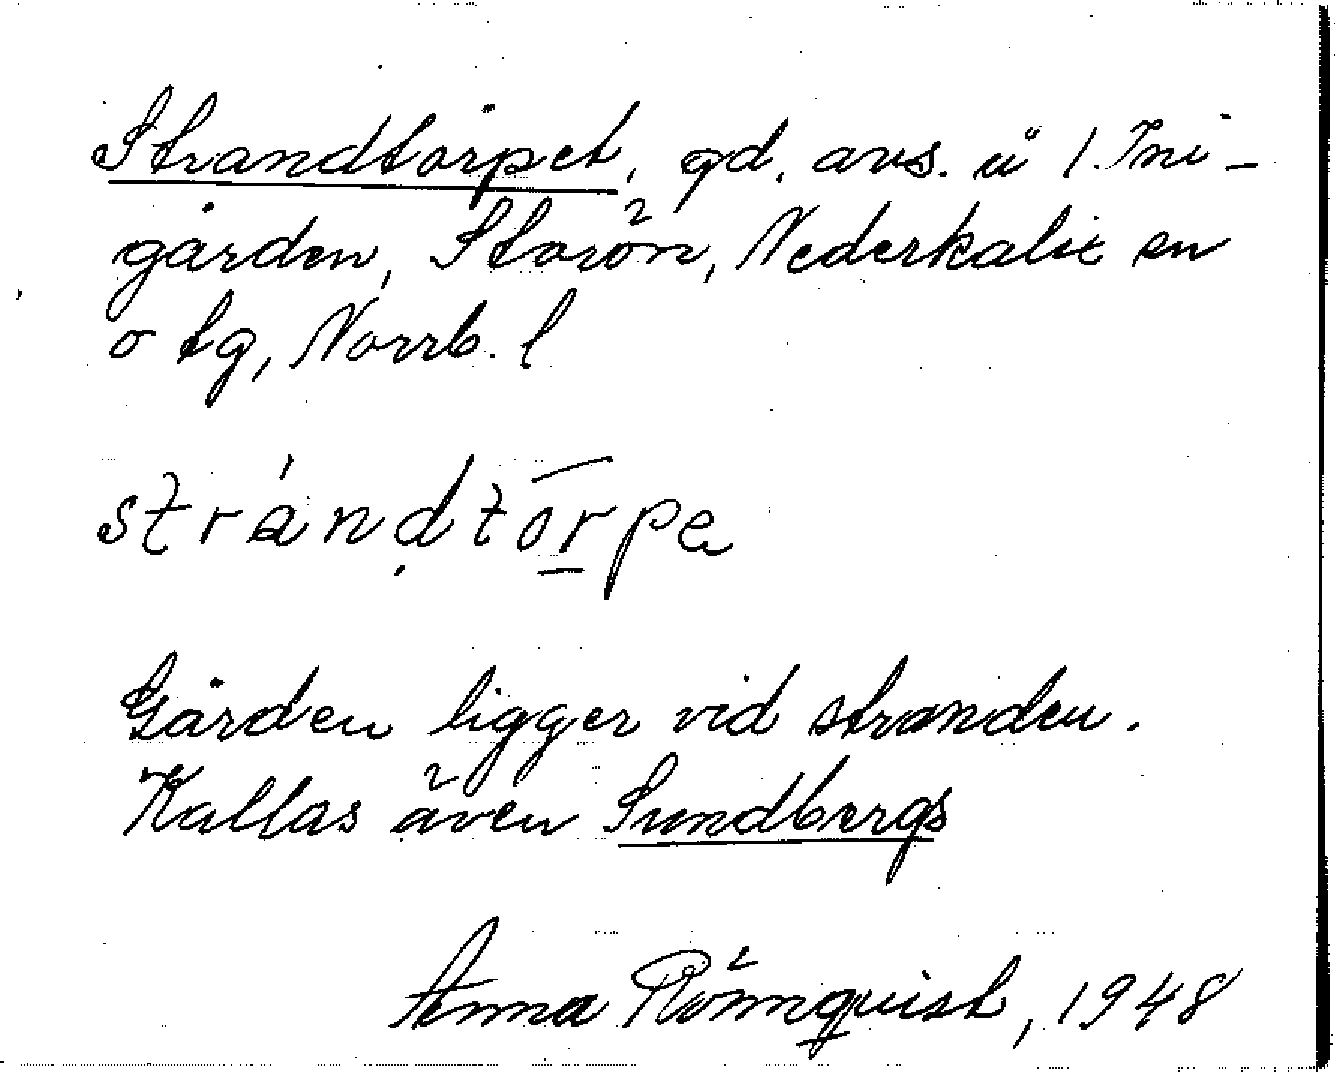 Strandtorpet, gd. avs. å 1 Ini-
gården, Storön, Nederkalix sn
o tg, Norrb. l
strándtorpe
Gården ligger vid stranden.
Kallas även Sundbergs
Anna Rönnquist, 1948